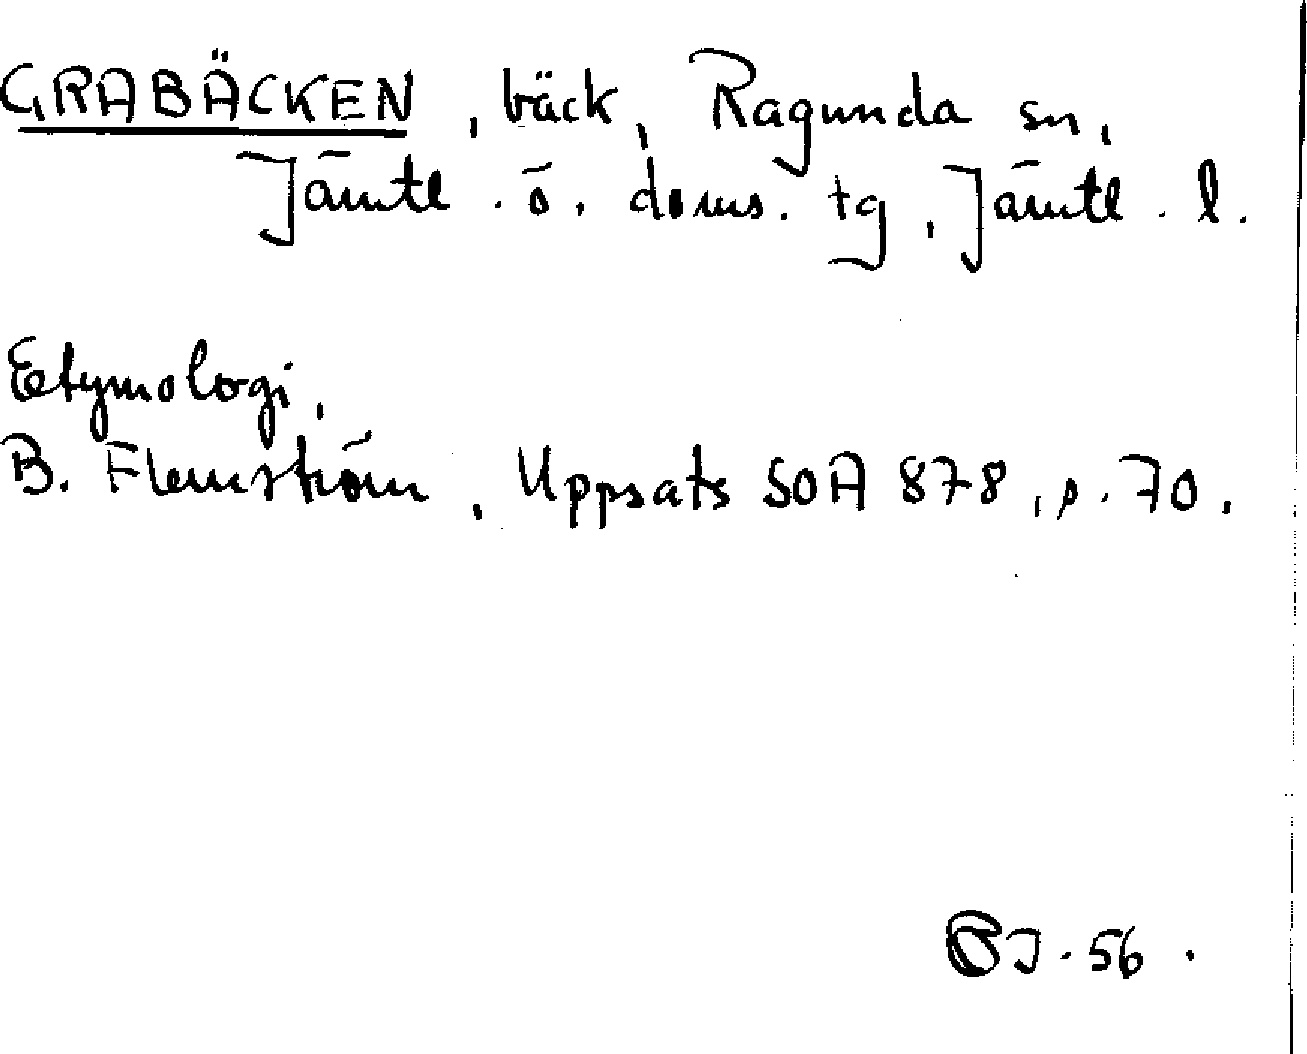 GRABÄCKEN, bäck, Ragunda sn,
Jämtl. ö. doms. tg, Jämtl. l.
Etymologi,
B. Flemström, Uppsats SOA 878, s. 70.
BJ. 56.